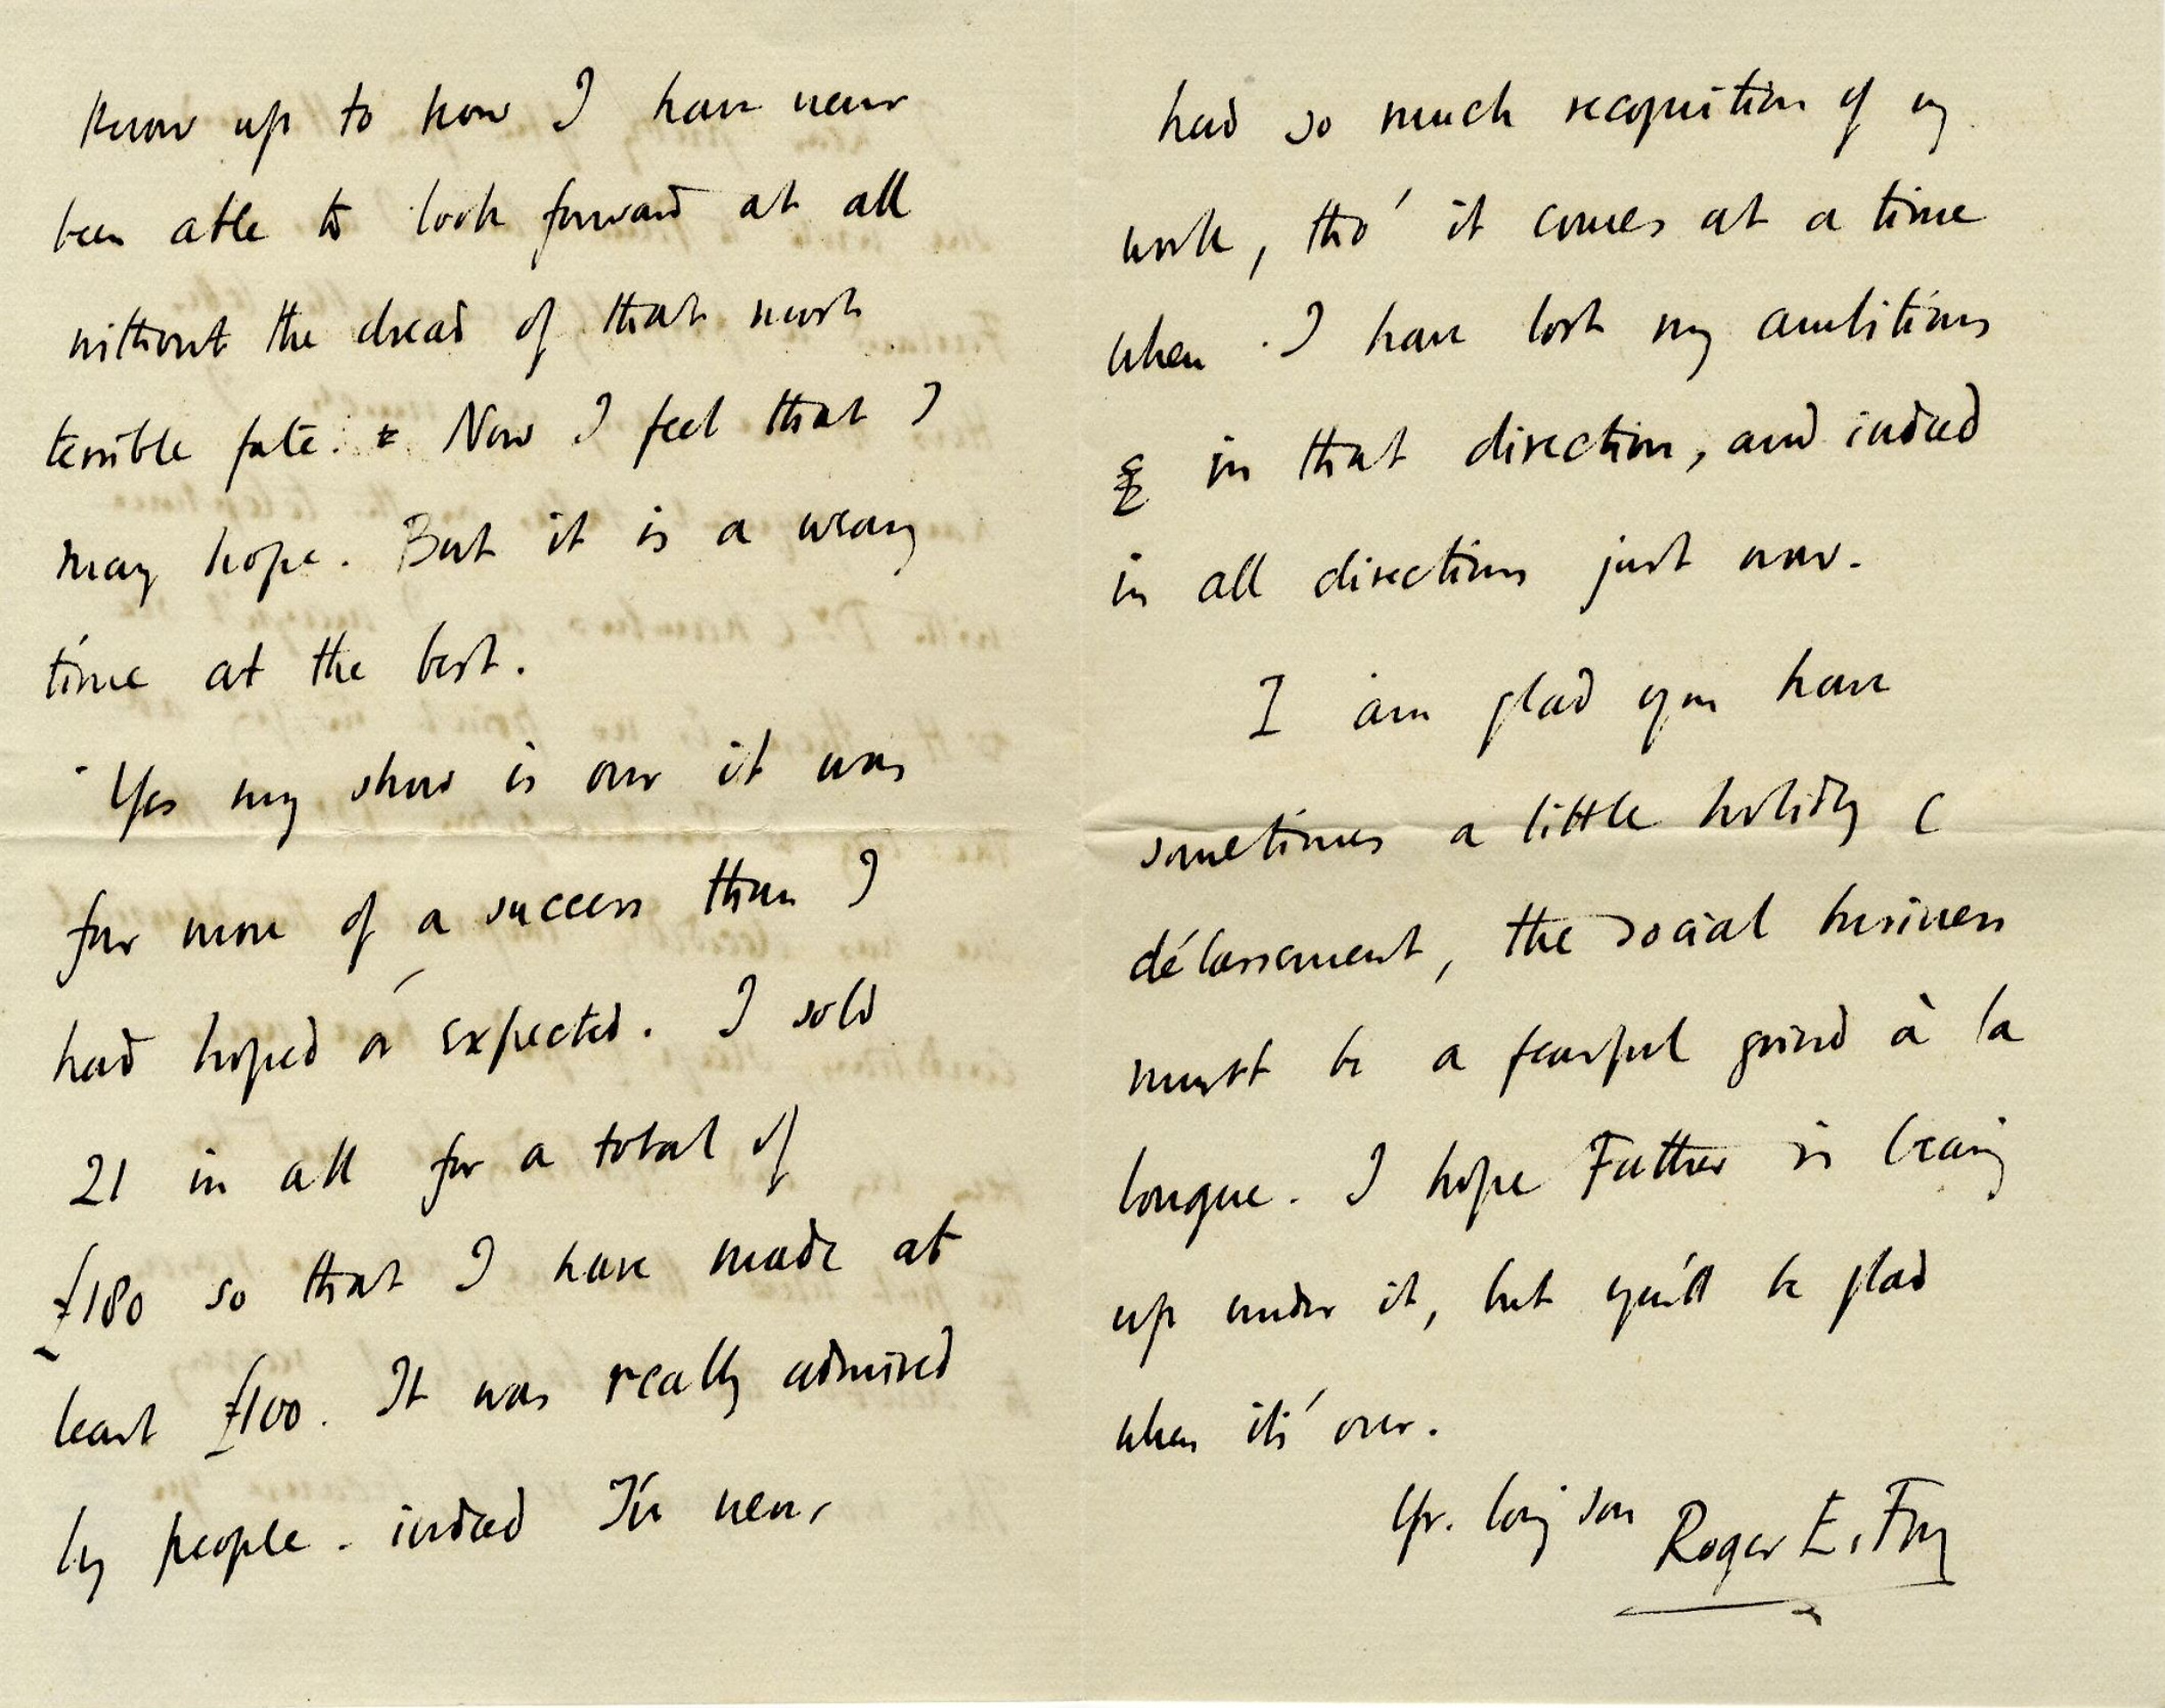 know up to now I have never
been able to look forward at all
without the dread of that most
terrible fate. Now I feel that I
may hope. But it is a weary
time at the best.
Yes my show is over it was
far more of a success than I
had hoped or expected. I sold
21 in all for a total of
£180 so that I have made at
least £100. It was really admired
by people. indeed I've never
had so much recognition of my
work, tho' it comes at a time
when I have lost my ambitions
in that direction, and indeed
in all directions just now.
I am glad you have
sometimes a little holiday &
délassement, the social business
must be a fearful grind à la
longue. I hope Father is bearing
up under it, but you'll be glad
when it's over.
Yr. loving son Roger E. Fry